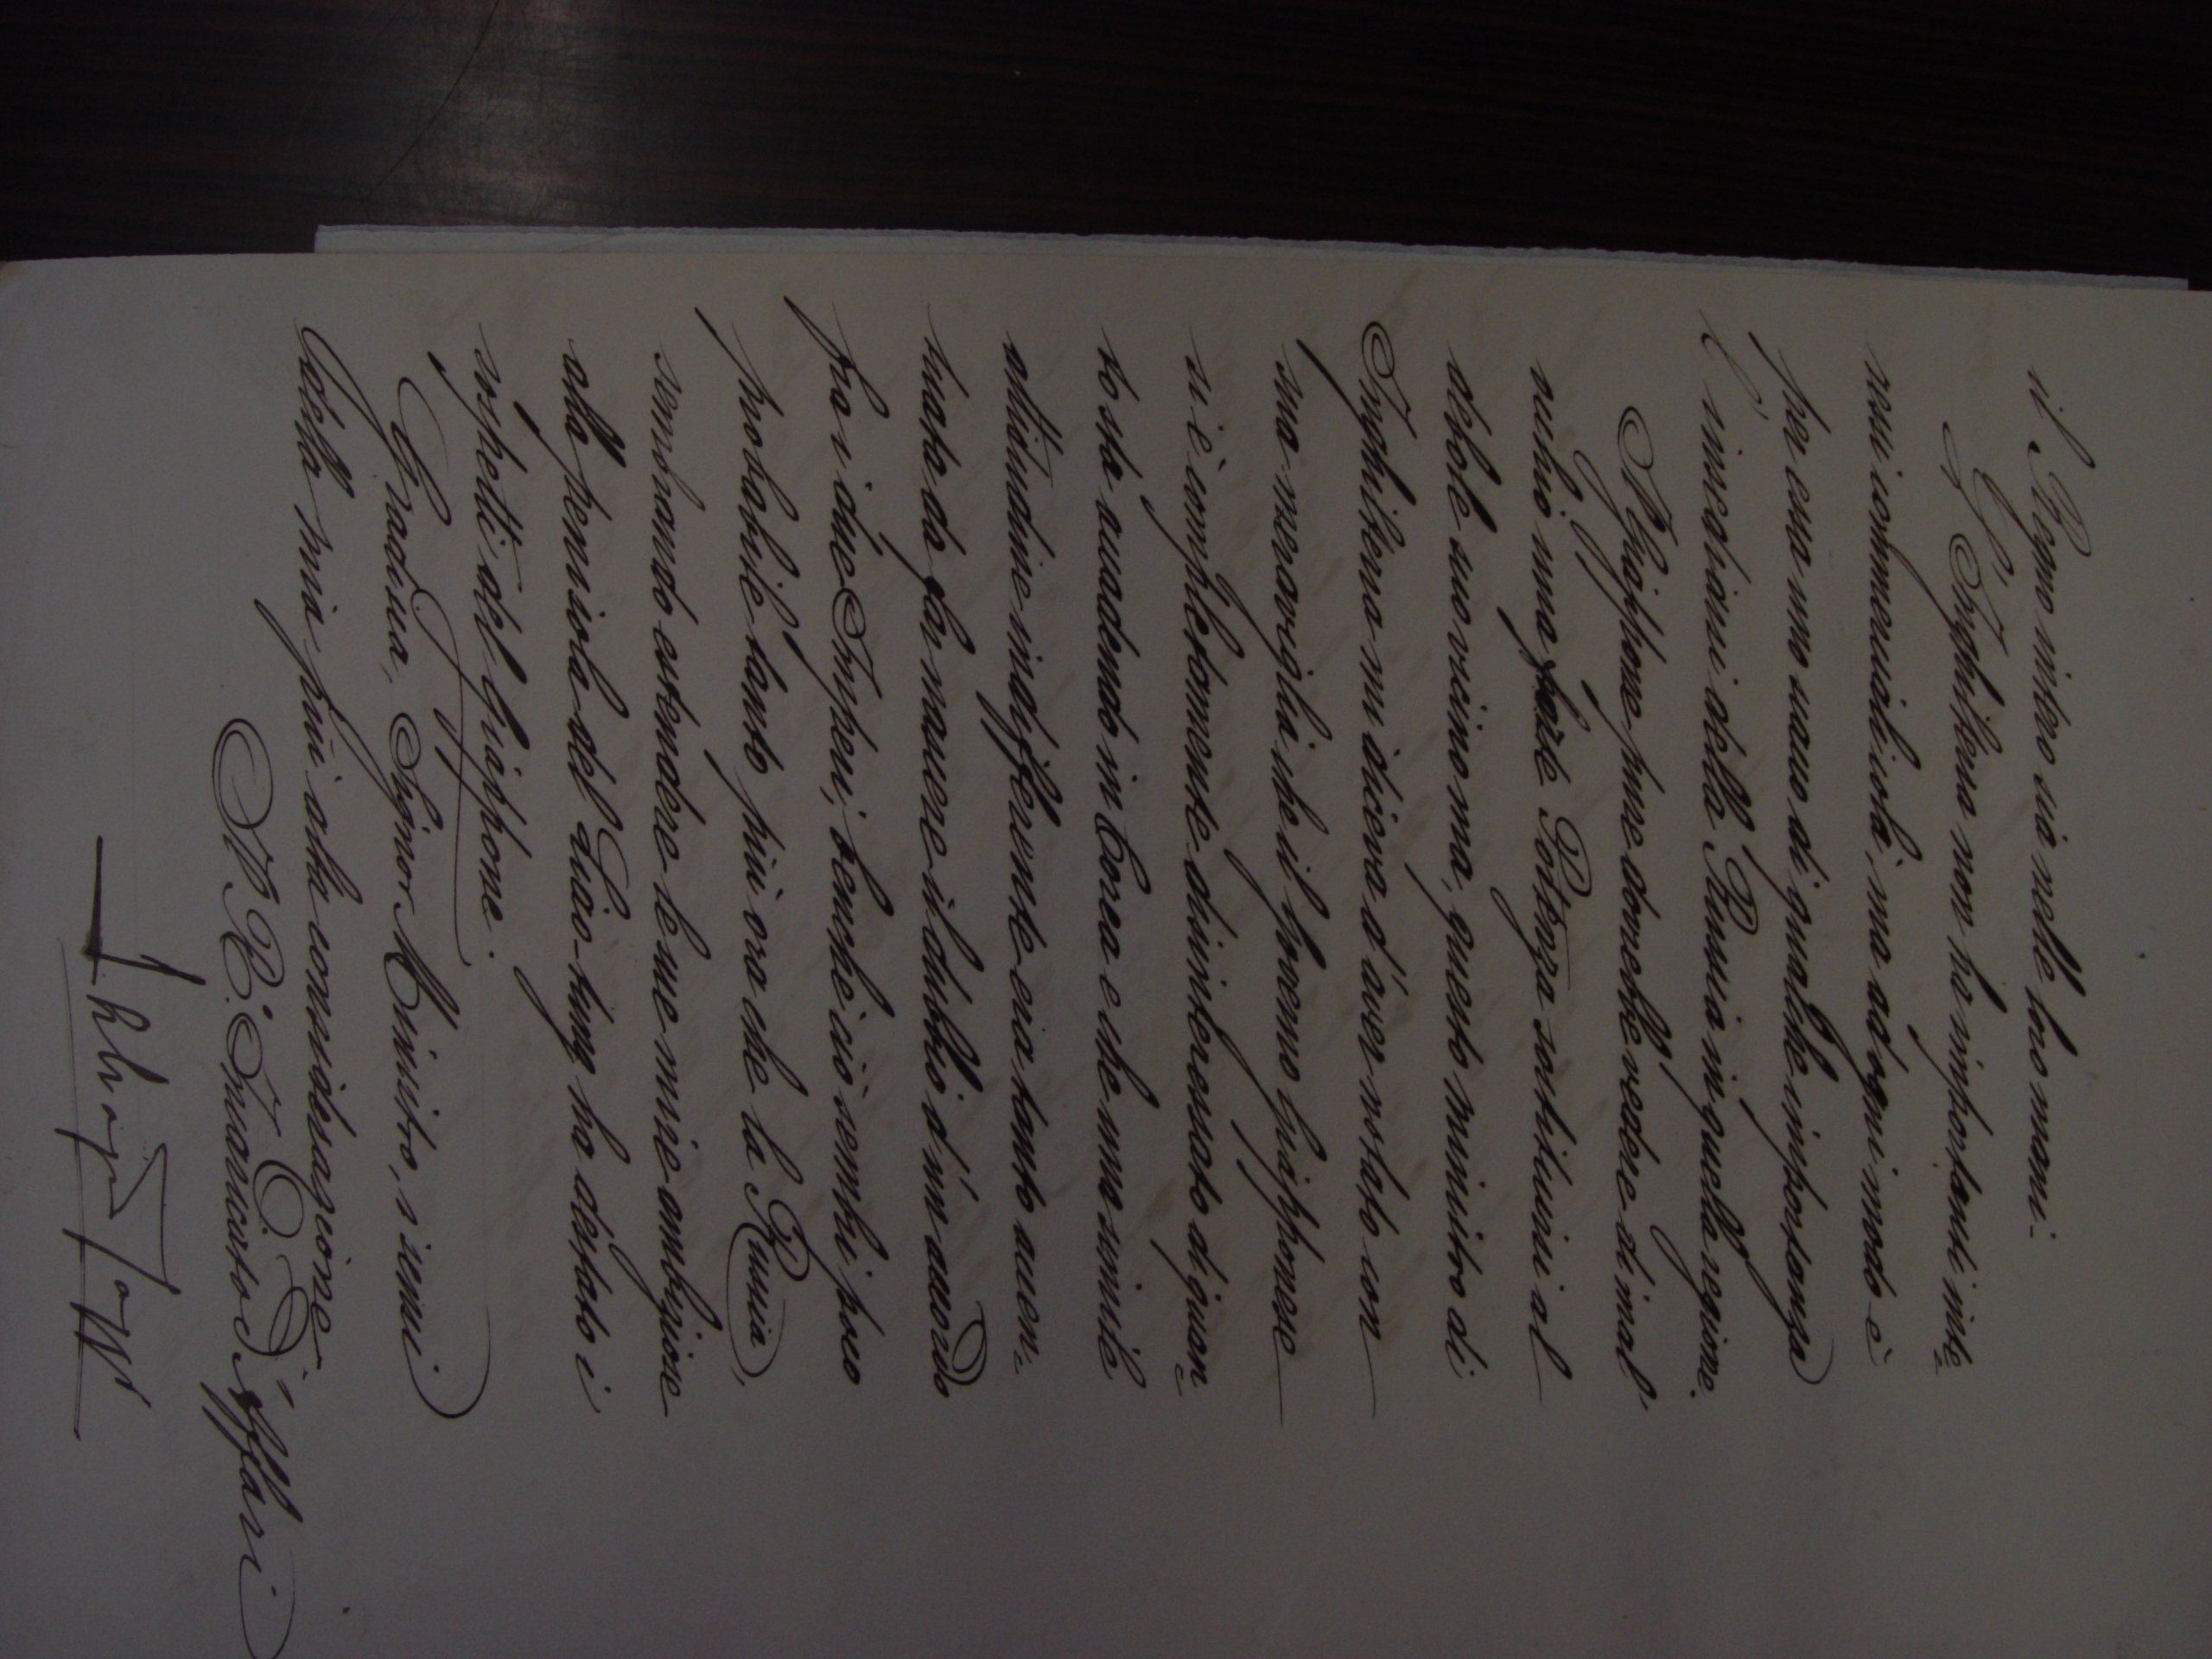 il Regno intero sia nelle loro mani.
L'Inghilterra non ha importanti inte
ressi commerciali colà, ma ad ogni modo è
per essa un causo di qualche importanza
l'insediarsi della Russia in quella regione.
Il Giappone pure dovrebbe vedere di mal'
occhio una forte Potenza sostituirsi al
debole suo vicino ma, questo ministro di
Inghilterra mi diceva d'aver notato con
sua meraviglia che il Governo Giapponese
si è completamente disinteressato di quan
to sta accadendo in Corea e che una simile
attitudine indifferente era tanto accen-
tuata da far nascere il dubbio d'un accordo
fra i due Imperi, benchè ciò sembri poco
probabile tanto più ora che la Russia,
sembrando estendere le sue mire ambiziose
alla penisola del Liao-tung ha destato i
sospetti del Giappone.
Gradisca, Signor Ministro, i sensi
della mia più alta considerazione
Il R. Incaricato d'Affari